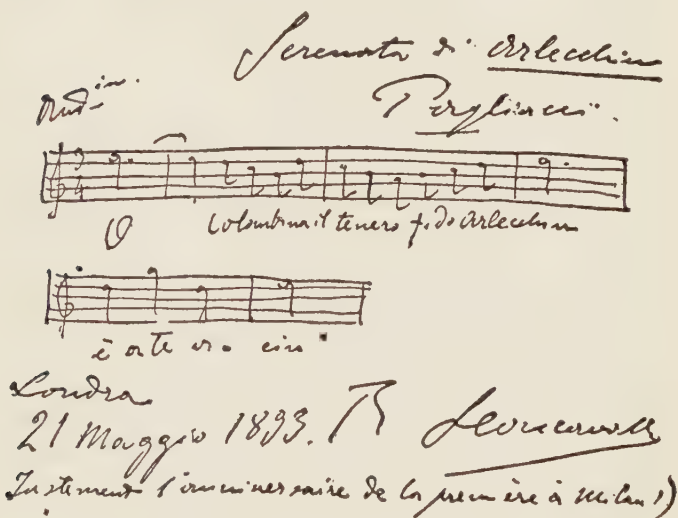 Serenata di Arlecchin
And.in.
Pagliacci.
3
4
O Colombina il tenero fido Arlecchin
è a te vi cin
Londra
21 Maggio 1893. R Leoncavallo
Justement l'anniversaire de la première à Milan!)